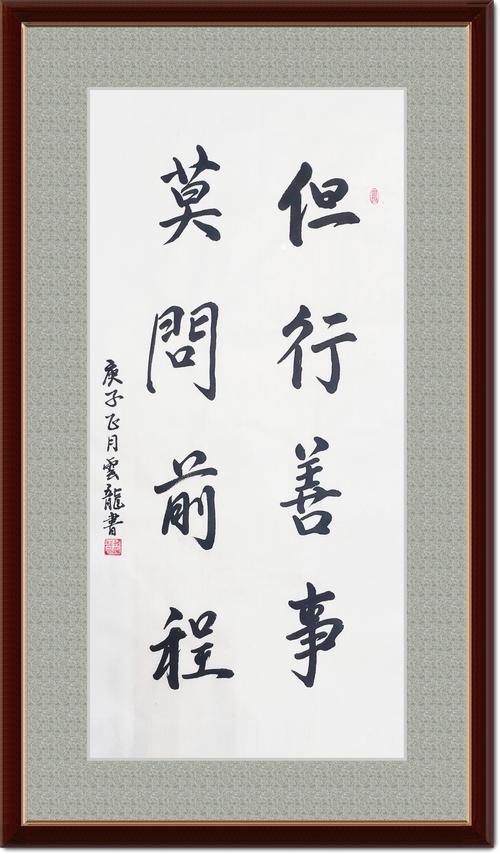 但行善事
莫問前程
庚子正月雲龍書